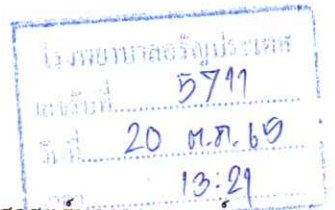 โรงพยาบาลอรัญประเทศ
เลขรับที่ 5711
วันที่ 20 ต.ค. 65
13:21